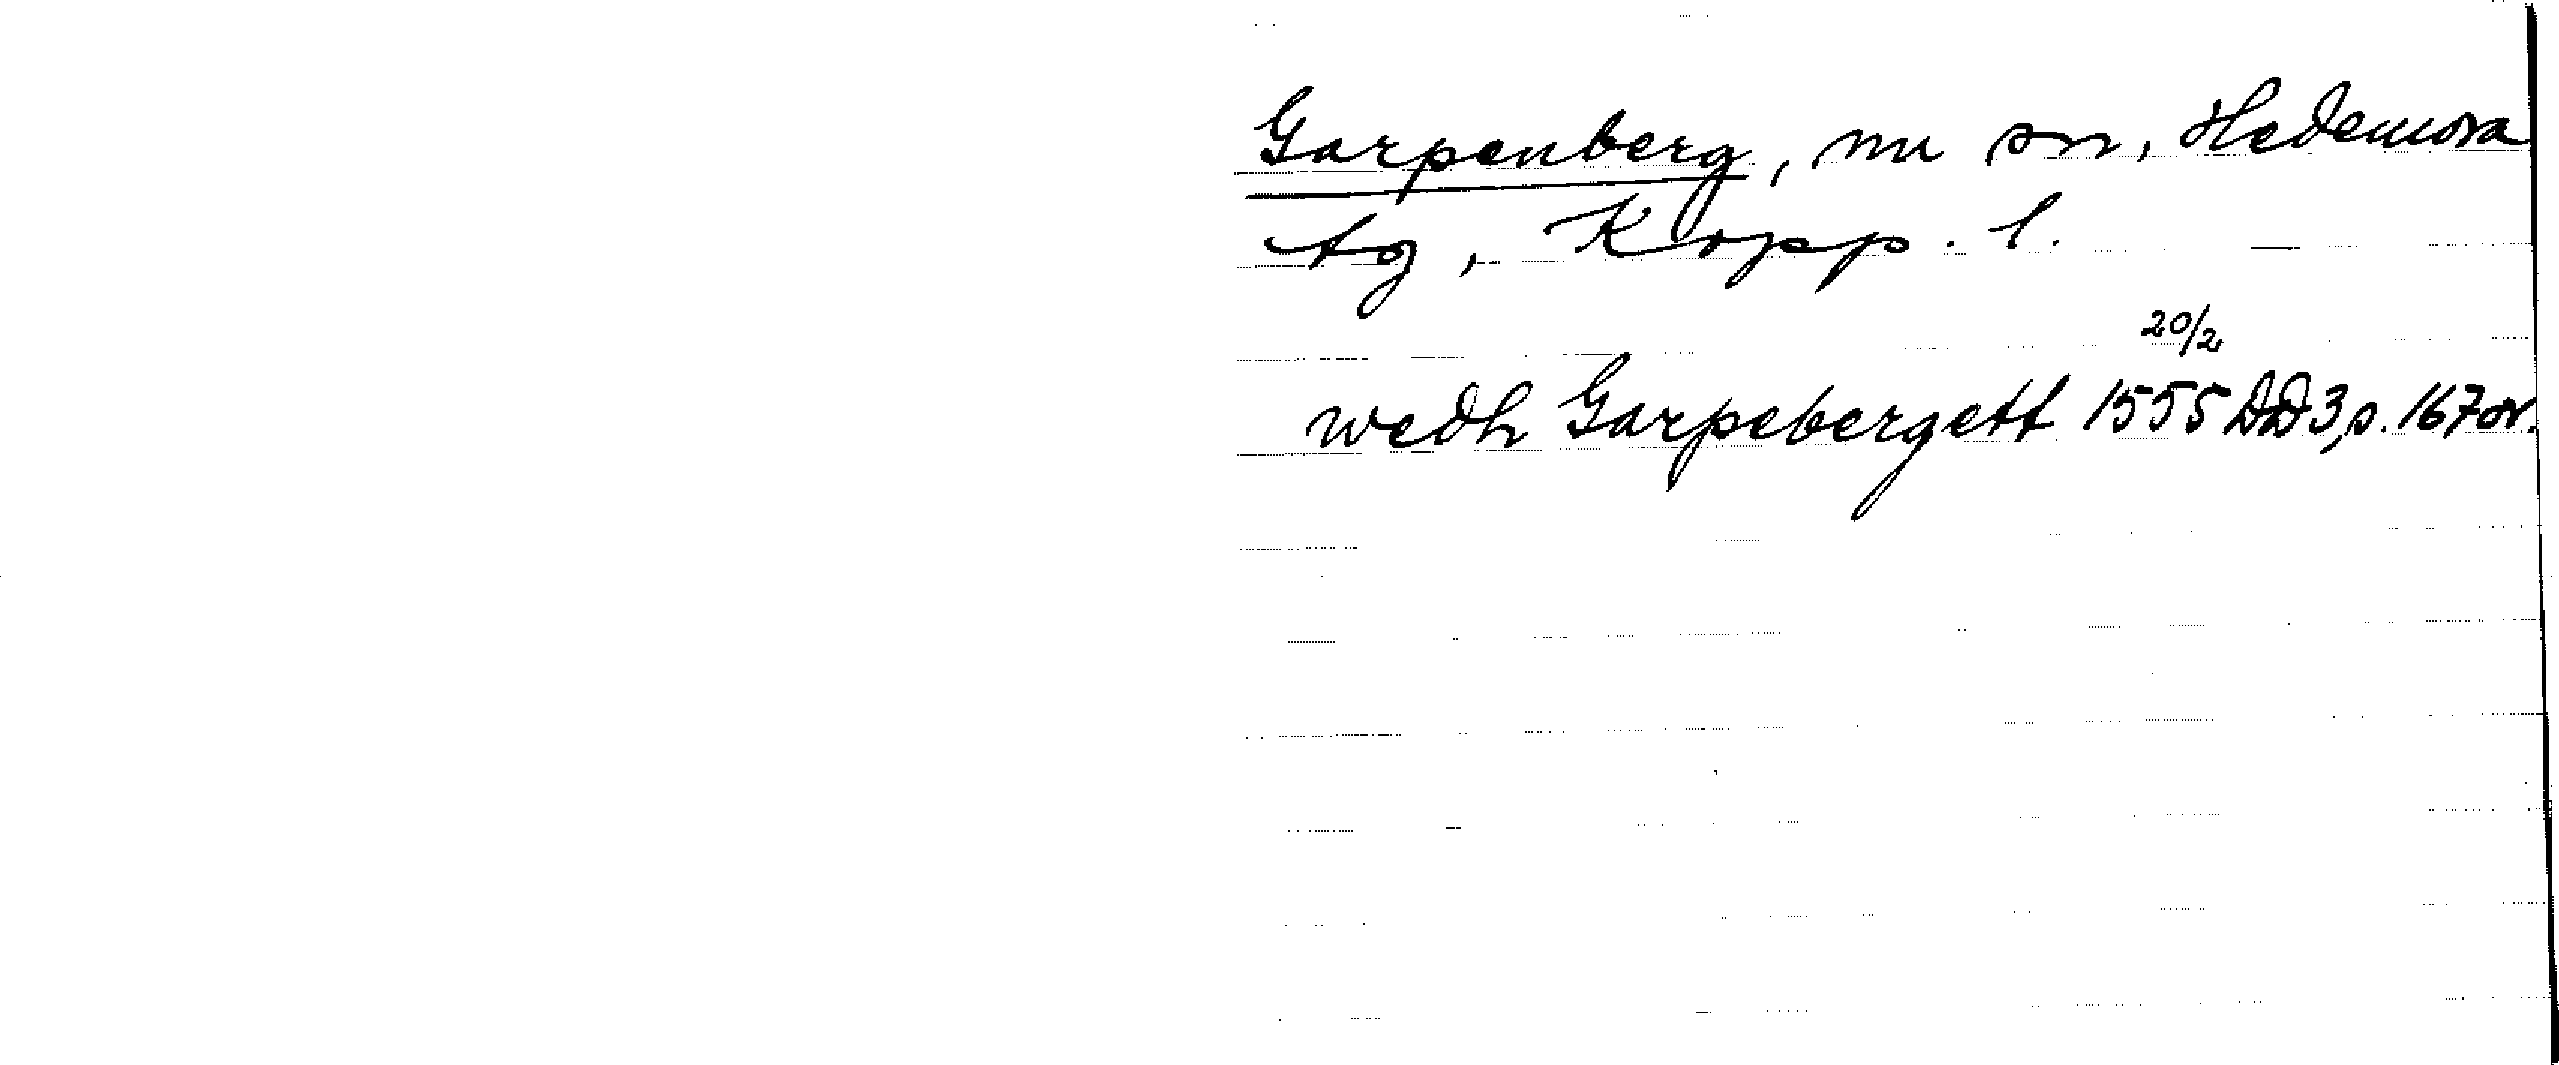 Garpenberg, nu sn, Hedemora
tg, Kopp. l.
20/2
wedh Garpebergett 1555 DD3, s. 167 or.